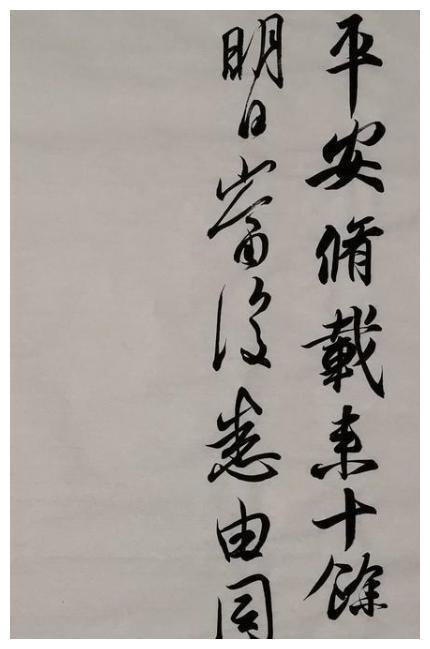 平安脩載来十餘
明日當復悉由同